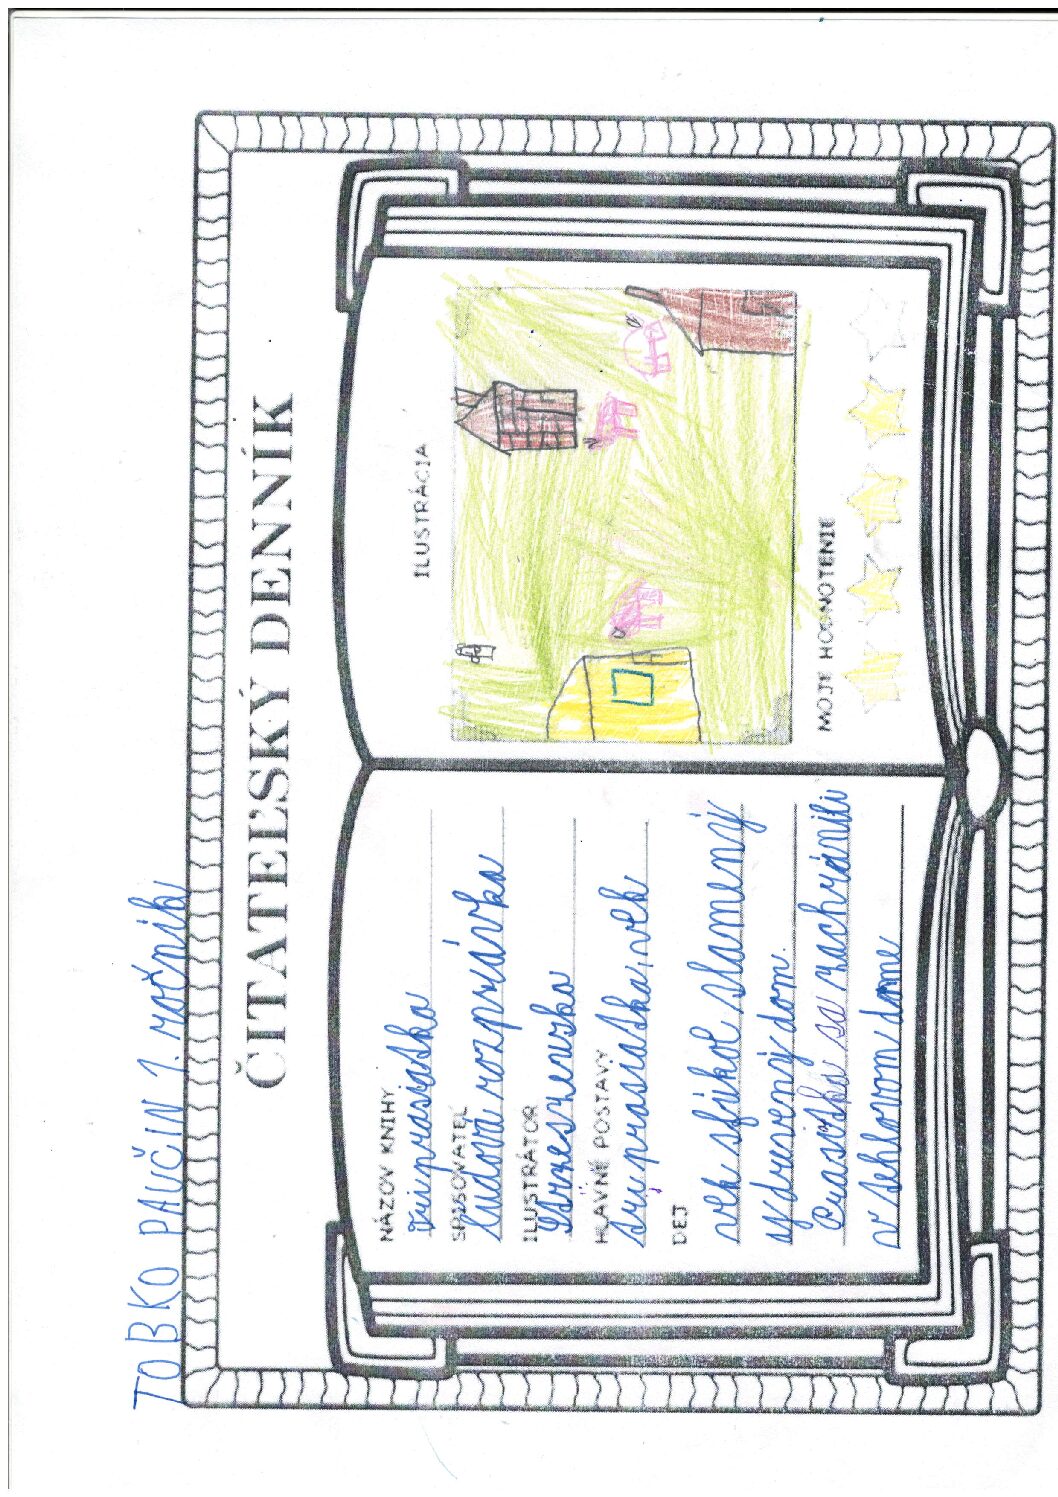 TOBKO PAUČIN 1. ročník
ČITATEĽSKÝ DENNÍK
NÁZOV KNIHY
Tri prasiatka
SPISOVATEĽ
Ľudová rozprávka
ILUSTRÁTOR
HLAVNÉ POSTAVY
tri prasiatka, vlk
DEJ
vlk sfúkol slamený
aj drevený dom.
Prasiatka sa zachránili
v tehlovom dome
ILUSTRÁCIA
MOJE HODNOTENIE